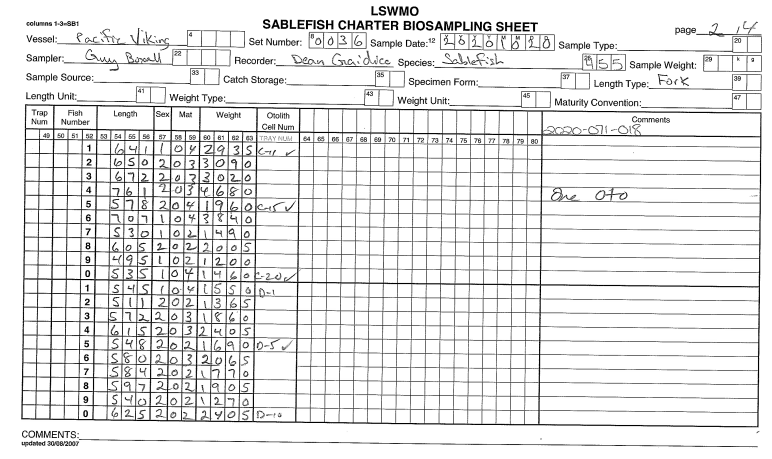 LSWMO
columns 1-3=SB1
SABLEFISH CHARTER BIOSAMPLING SHEET
page 2 / 4
Vessel: Pacific Viking 4 Set Number: 8 0036 Sample Date: 12 Sample Type: 20
Sampler: Guy 22 Recorder: Dean Species: Sablefish 455 Sample Weight: 29 k g
Sample Source: 33 Catch Storage: 35 Specimen Form: 37 Length Type: Fork 39
Length Unit: 41 Weight Type: 43 Weight Unit: 45 Maturity Convention: 47
Trap Num Fish Number Length Sex Mat Weight Otolith Cell Num Comments
2020-071-018
49 50 51 52 53 54 55 56 57 58 59 60 61 62 63 TRAY NUM 64 65 66 67 68 69 70 71 72 73 74 75 76 77 78 79 80
1 641 1 04 2935 C-11 ✓
2 650 2 03 3090
3 672 2 03 3020
4 761 2 03 4680 One oto
5 578 2 04 1960 C-15 ✓
6 707 1 04 3840
7 530 1 02 1490
8 605 2 02 2005
9 495 1 02 1200
0 535 1 04 1460 C-20 ✓
1 545 1 04 1550 D-1
2 511 2 02 1365
3 572 2 03 1860
4 615 2 03 2405
5 548 2 02 1690 D-5 ✓
6 580 2 03 2065
7 584 2 02 1770
8 597 2 02 1905
9 540 2 02 1270
0 625 2 02 2405 D-10
COMMENTS:
updated 30/08/2007